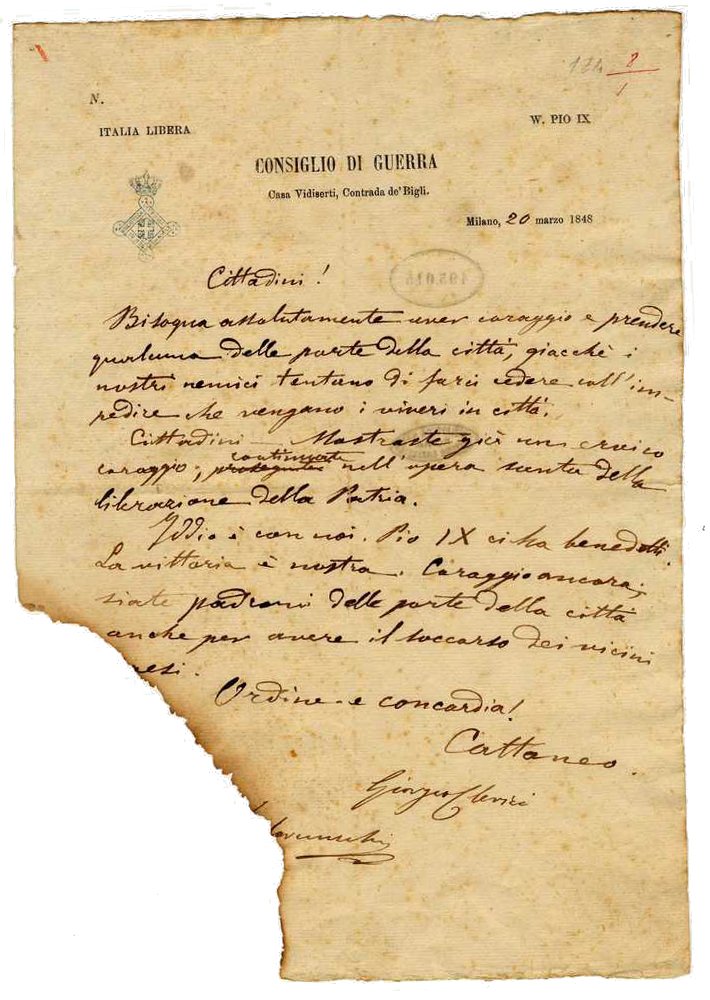 134 8
1
N.
ITALIA LIBERA
W. PIO IX
CONSIGLIO DI GUERRA
Casa Vidiserti, Contrada de' Bigli.
Milano, 20 marzo 1848
Cittadini!
Bisogna assolutamente aver coraggio e prendere
qualcuna delle porte della città, giacchè i
nostri nemici tentano di farci cedere coll'im-
pedire che vengano i viveri in città.
Cittadini — Mostraste già un eroico
coraggio; continuate nell'opera santa della
liberazione della Patria.
Iddio è con noi. Pio IX ci ha benedetti.
La vittoria è nostra. Coraggio ancora;
siate padroni delle porte della città
anche per avere il soccorso dei vicini
esi.
Ordine e concordia!
Cattaneo.
Giorgio Clerici